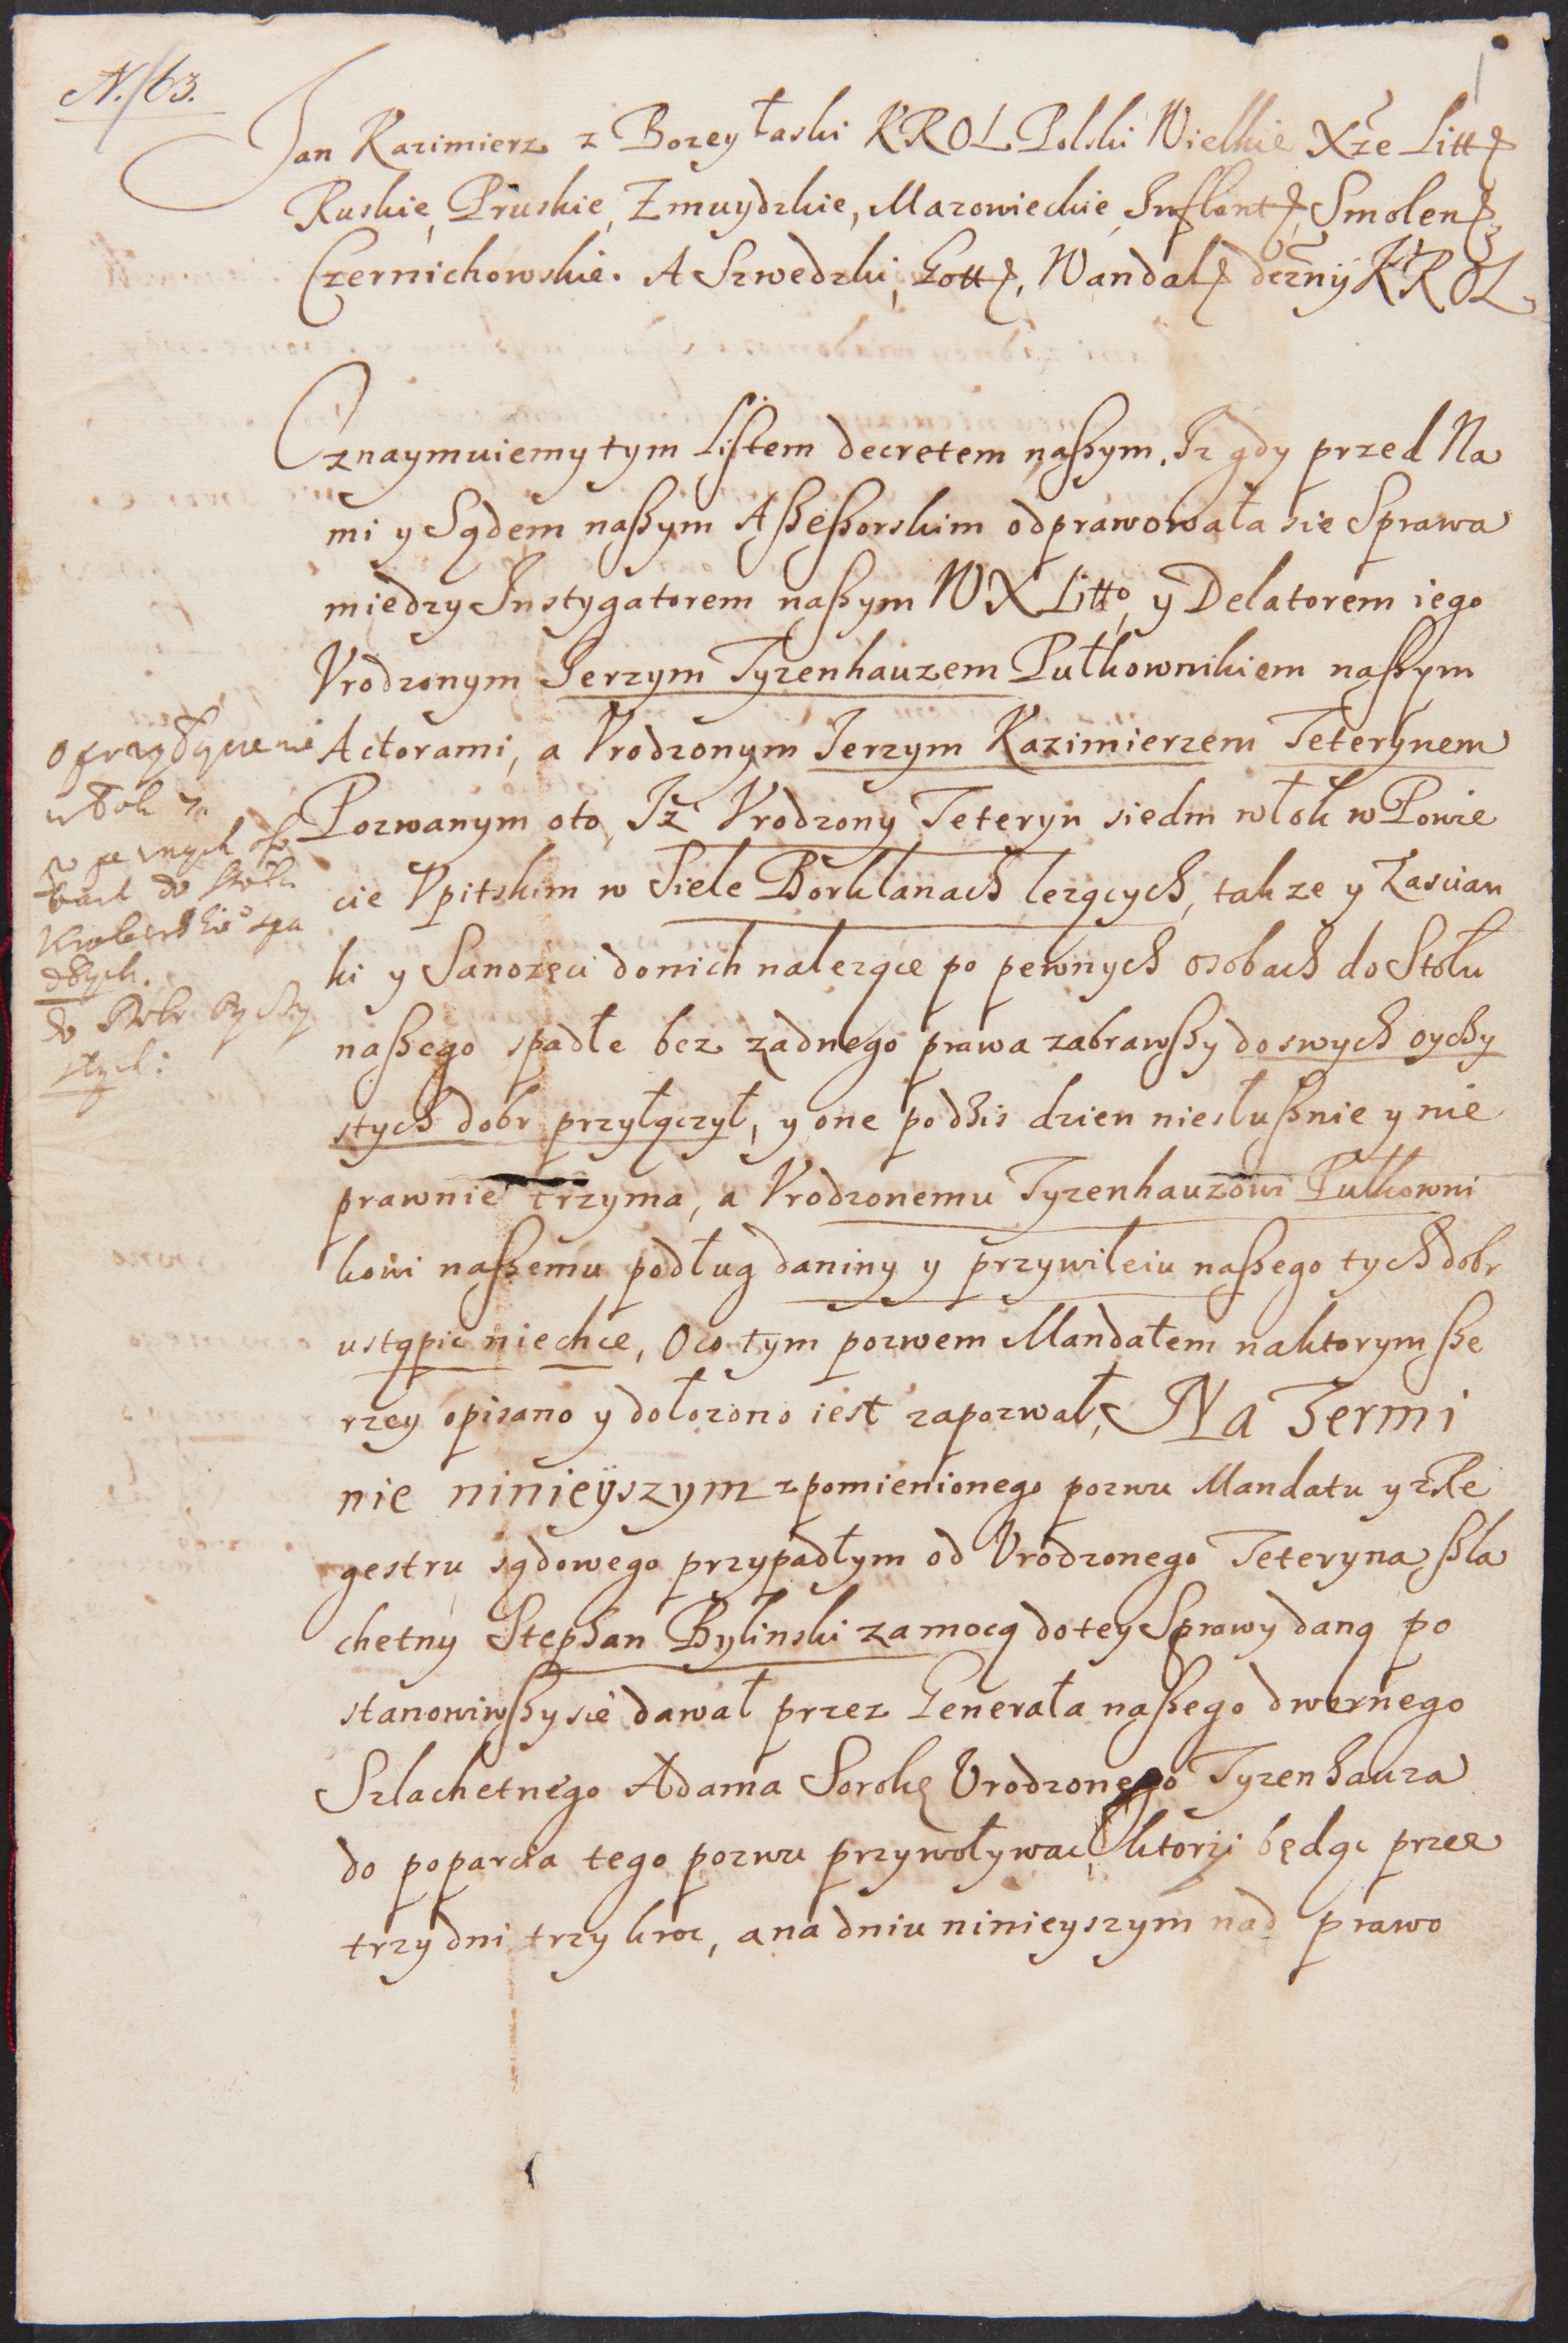 N. 63.
Jan Kazimierz z Bozey łaski KROL Polski Wielkie Xże Litt
Ruskie, Pruskie, Zmuydzkie, Mazowieckie, Inflant, Smolen,
Czernichowskie. A Szwedzki, Gott, Wandal dzny KROL,
Oznaymuiemy tym Listem decretem naszym. Iz gdy przed Na
mi y Sądem naszym Assessorskim odprawowała sie Sprawa
miedzy Instygatorem naszym WX Litto, y Delatorem iego
Vrodzonym Jerzym Tyzenhauzem Pułkownikiem naszym
Actorami, a Vrodzonym Jerzym Kazimierzem Teterynem
Pozwanym oto, Iż Vrodzony Teteryn siedm włok w Powie
cie Vpitskim w Siele Borklanach lezących, takze y Zascian
ki y Sanozęci do nich nalezące po pewnych osobach do Stołu
naszego spadłe bez zadnego prawa zabrawszy do swych oyczy
stych dobr przyłączył, y one po dzis dzien niesłusznie y nie
prawnie trzyma, a Vrodzonemu Tyzenhauzowi Pułkowni
kowi naszemu podług daniny y przywileiu naszego tych dobr
ustąpic niechce, Oco tym pozwem Mandatem naktorym sze
rzey opisano y dołozono iest zapozwał, Na Termi
nie ninieÿszym z pomienionego pozwu Mandatu y z Re
gestru sądowego przypadłym od Vrodzonego Teteryna szla
chetny Stephan Bylinski za mocą do tey Sprawy daną po
stanowiwszy sie dawał przez Generała naszego dwornego
Szlachetnego Adama Sorokę Vrodzonego Tyzenhauza
do poparcia tego pozwu przywoływac, ktorÿ będąc przez
trzy dni trzy kroc, a na dniu ninieyszym nad prawo
włok 7.
po pewnych oso
bach do stołu
Krolewskie spa
dłych.
do Dobr Oyczy
stych: